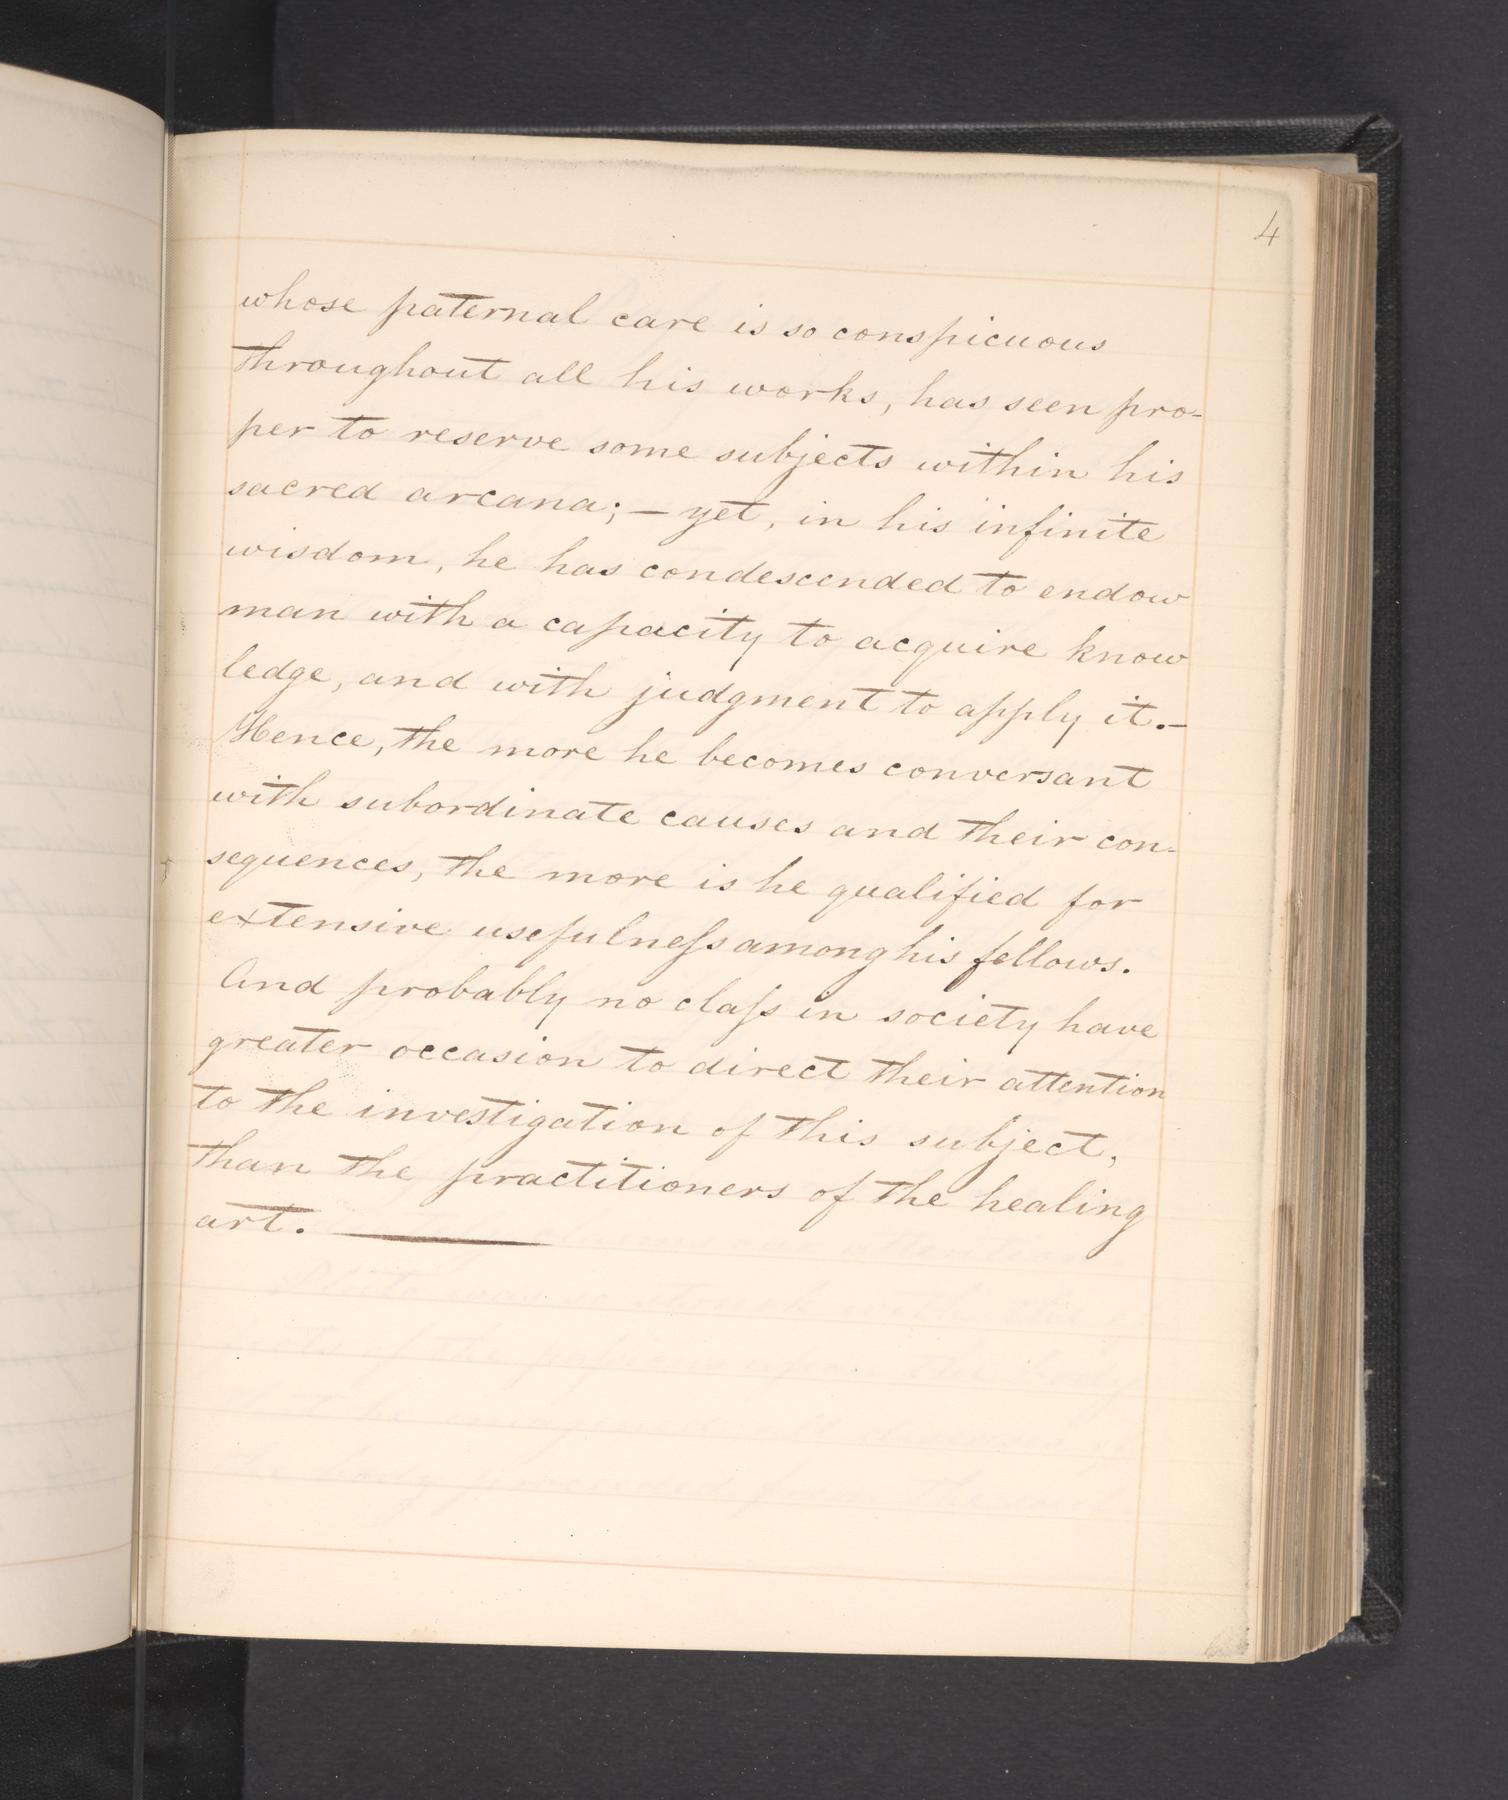 4
whose paternal care is so conspicuous
throughout all his works, has seen pro-
per to reserve some subjects within his
sacred arcana; — yet, in his infinite
wisdom, he has condescended to endow
man with a capacity to acquire know
ledge, and with judgment to apply it.—
Hence, the more he becomes conversant
with subordinate causes and their con-
sequences, the more is he qualified for
extensive usefulneſs among his fellows.
And probably no claſs in society have
greater occasion to direct their attention
to the investigation of this subject,
than the practitioners of the healing
art. —